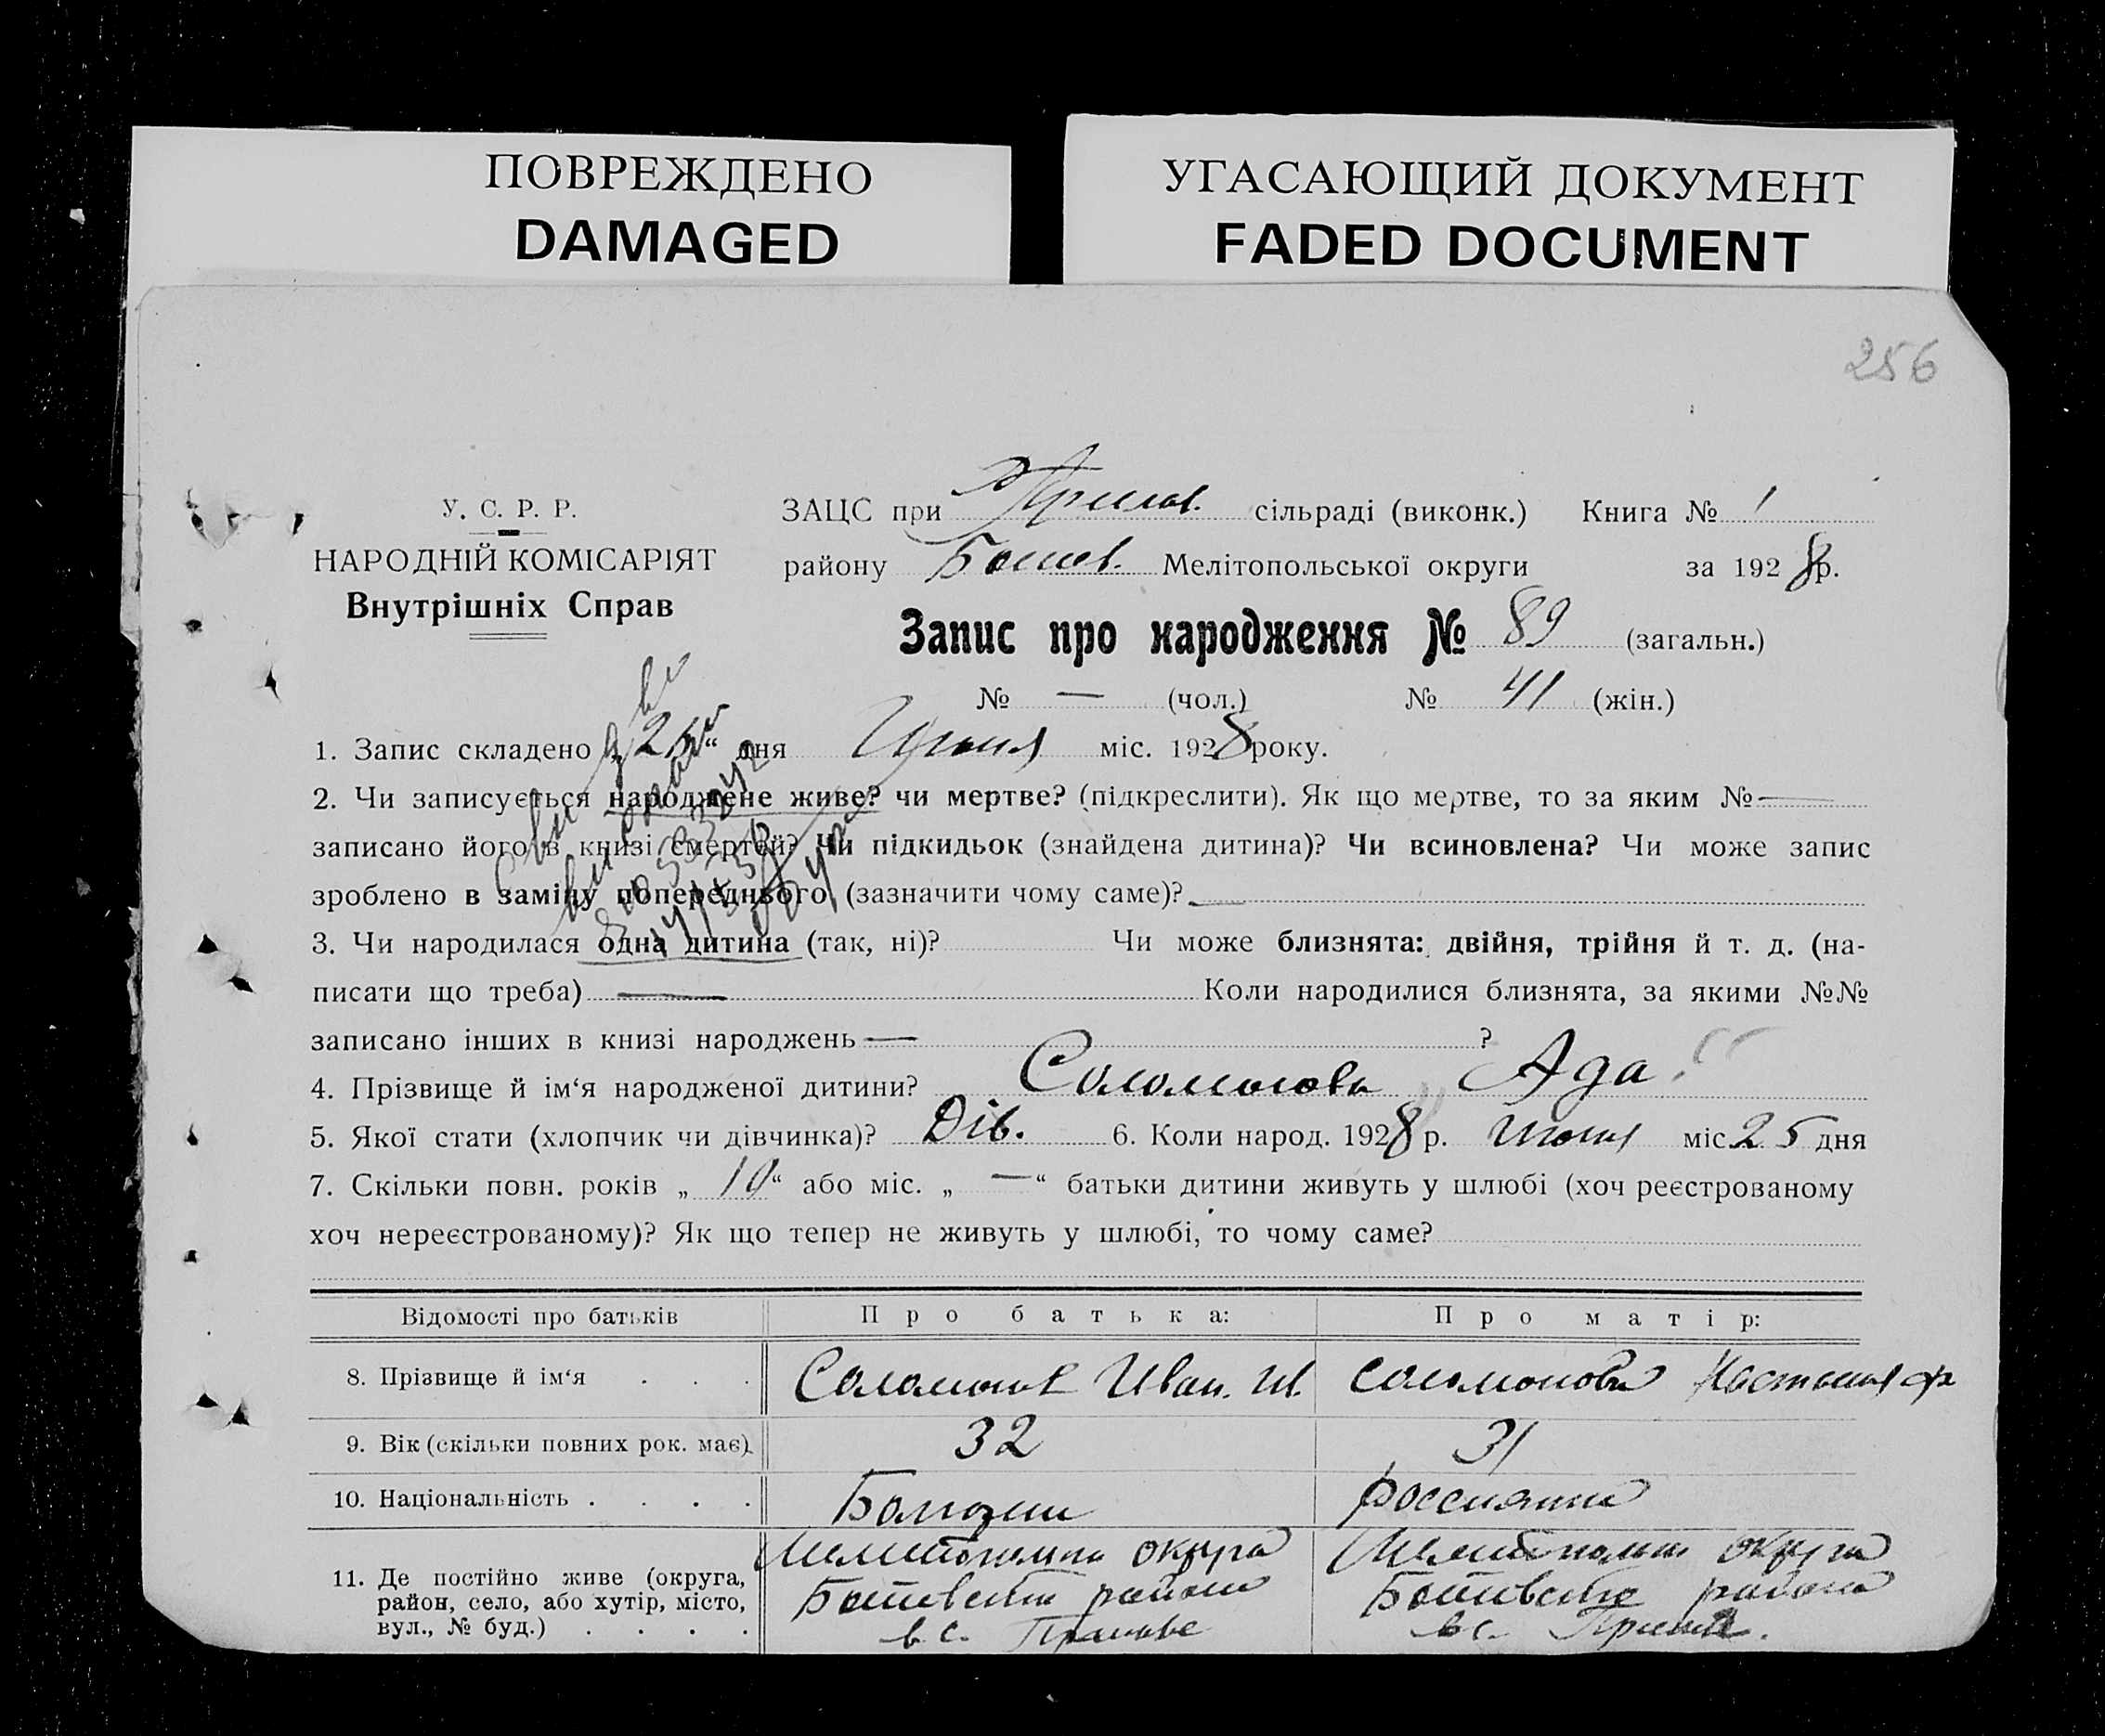 ПОВРЕЖДЕНО
DAMAGED
УГАСАЮЩИЙ ДОКУМЕНТ
FADED DOCUMENT
256
У. С. Р. Р.
НАРОДНІЙ КОМІСАРІЯТ
Внутрішніх Справ
ЗАЦС при сільраді (виконк.) Книга № 1
району Мелітопольської округи за 1928 р.
Запис про народження № 89 (загальн.)
№ — (чол.) № 41 (жін.)
1. Запис складено „ “ дня міс. 1928 року.
2. Чи записується народжене живе? чи мертве? (підкреслити). Як що мертве, то за яким № —
записано його в книзі смертей? Чи підкидьок (знайдена дитина)? Чи всиновлена? Чи може запис
зроблено в заміну попереднього (зазначити чому саме)? —
3. Чи народилася одна дитина (так, ні)? Чи може близнята: двійня, трійня й т. д. (на-
писати що треба) — Коли народилися близнята, за якими №№
записано інших в книзі народжень — ?
4. Прізвище й ім‘я народженої дитини? Соломонова Ада
5. Якої стати (хлопчик чи дівчинка)? Дів. 6. Коли народ. 1928 р. міс. 25 дня
7. Скільки повн. років „ 10 “ або міс. „ — “ батьки дитини живуть у шлюбі (хоч реєстрованому
хоч нереєстрованому)? Як що тепер не живуть у шлюбі, то чому саме?
Відомості про батьків Про батька: Про матір:
8. Прізвище й ім‘я . . . Соломонов Иван. Ив. Соломонова
9. Вік (скільки повних рок. має). 32 31
10. Національність . . . . Россиянка
11. Де постійно живе (округа,
район, село, або хутір, місто,
вул., № буд.) . . . .
округа
района
в с.
округа
района
в с.